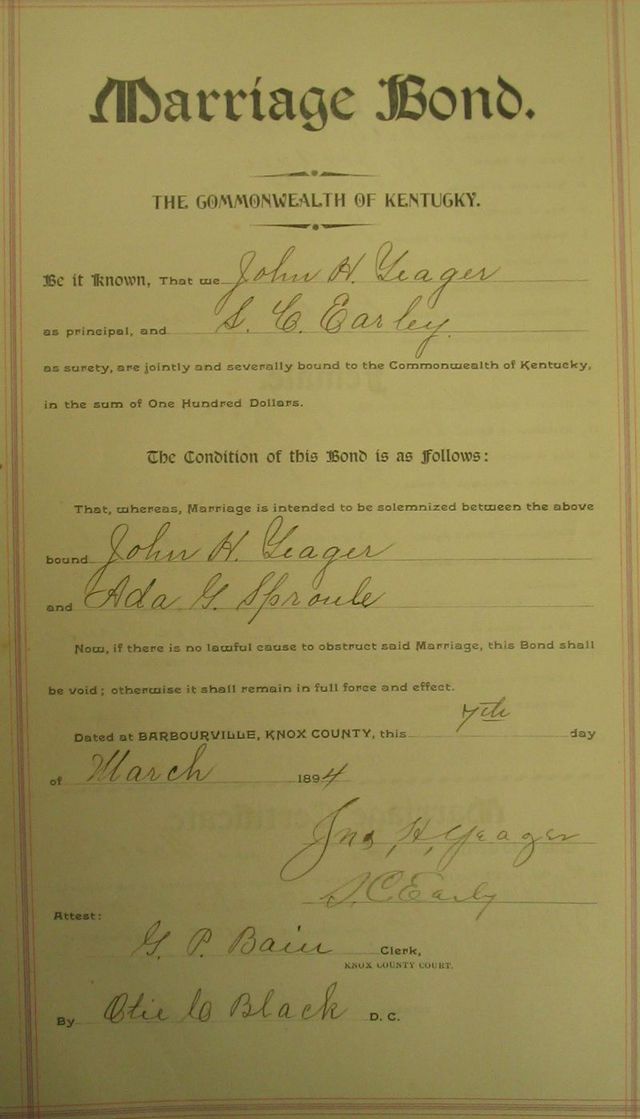 Marriage Bond.
THE COMMONWEALTH OF KENTUCKY.
Be it Known, That we John H. Yeager
as principal, and S. C. Earley.
as surety, are jointly and severally bound to the Commonwealth of Kentucky,
in the sum of One Hundred Dollars.
The Condition of this Bond is as Follows:
That, whereas, Marriage is intended to be solemnized between the above
bound John H. Yeager
and Ada G. Sproule
Now, if there is no lawful cause to obstruct said Marriage, this Bond shall
be void; otherwise it shall remain in full force and effect.
Dated at BARBOURVILLE, KNOX COUNTY, this 7th day
of March 1894
Jno, H, Yeager
S. C Early
Attest:
G. P. Bain Clerk,
KNOX COUNTY COURT.
By Black D. C.